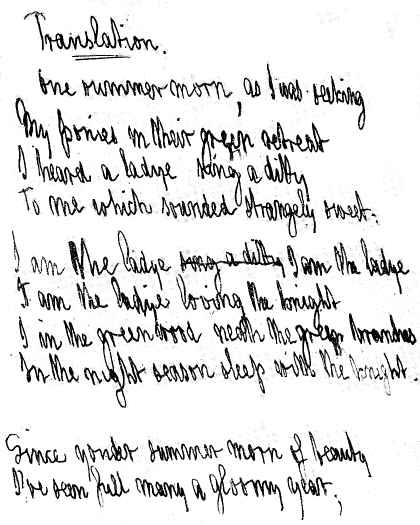 Translation.
One summer morn, as I was seeking
My ponies in their green retreat
I heard a ladye sing a ditty
To me which sounded strangely sweet.
I am the ladye song a ditty I am the ladye
I am the ladye loving the knight
I in the greenwood neath the green branches
In the night season sleep with the knight.
Since yonder summer morn of beauty
I've seen full many a gloomy year;